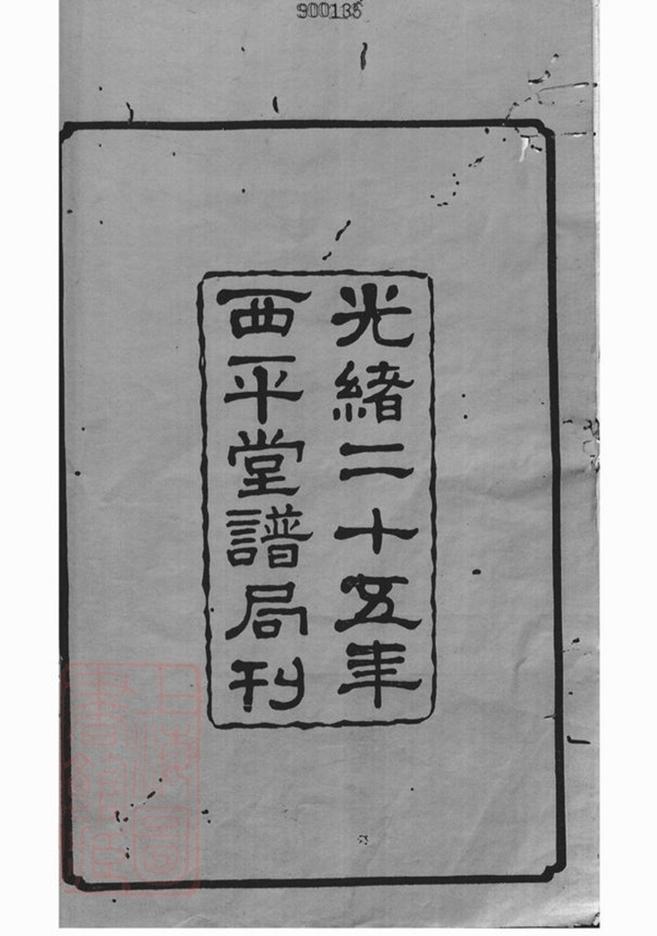 900135
光緒二十五年
西平堂譜局刊